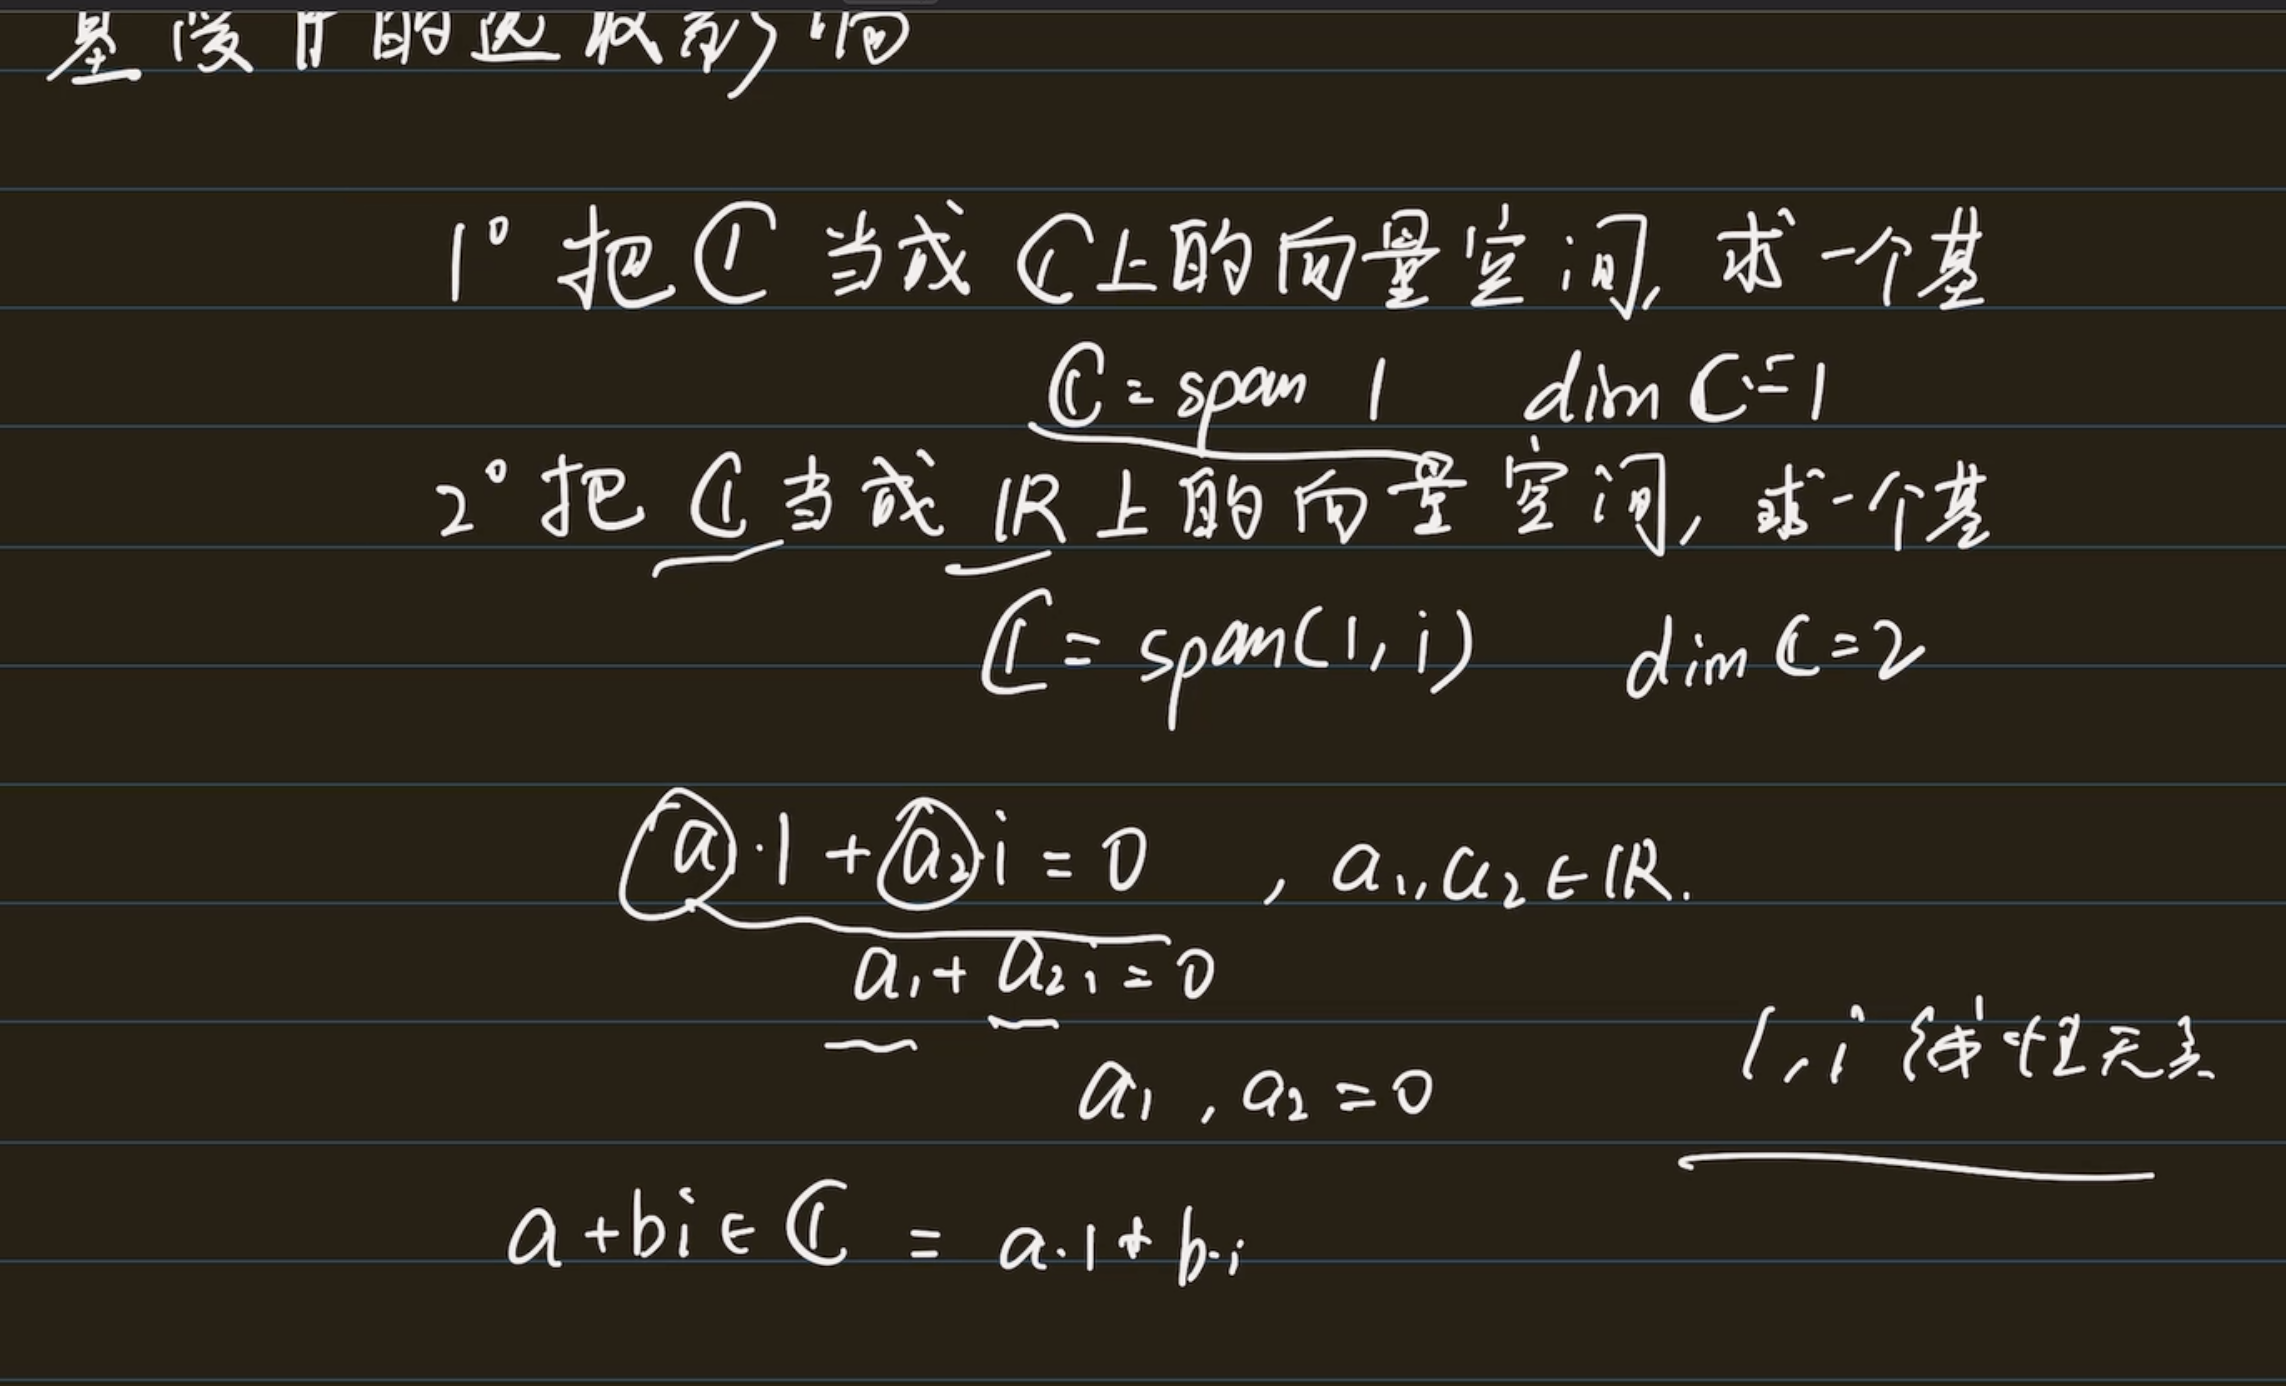 基受 F 的选取影响
1° 把 ℂ 当成 ℂ 上的向量空间, 求一个基
ℂ = span 1 dim ℂ = 1
2° 把 ℂ 当成 ℝ 上的向量空间, 求一个基
ℂ = span(1, i) dim ℂ = 2
a₁·1 + a₂·i = 0 , a₁, a₂ ∈ ℝ.
a₁ + a₂i = 0
1, i 线性无关
a₁ , a₂ = 0
a + bi ∈ ℂ = a·1 + b·i